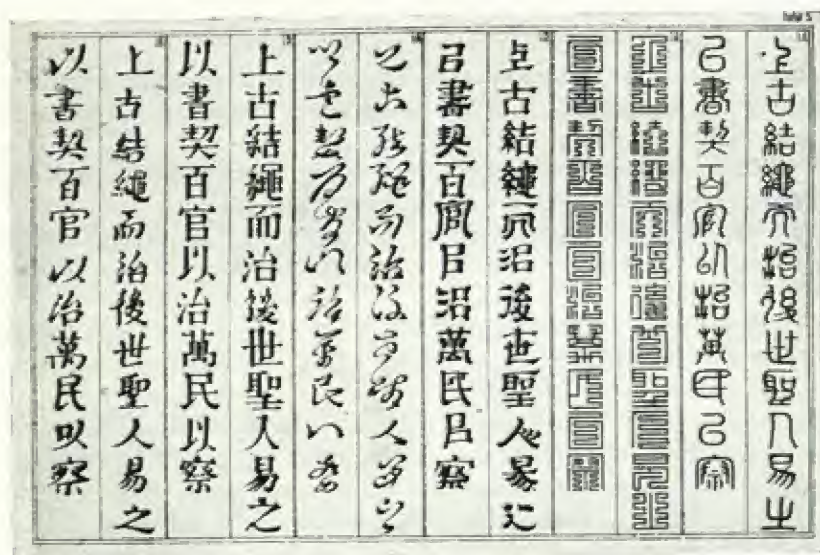 上古結繩而治後世聖人易之
以書契百官以治萬民以察
上古結繩而治後世聖人易之
以書契百官以治萬民以察
上古結繩而治後世聖人易之
以書契百官以治萬民以察
上古結繩而治後世聖人易之
以書契百官以治萬民以察
上古結繩而治後世聖人易之
以書契百官以治萬民以察
上古結繩而治後世聖人易之
以書契百官以治萬民以察